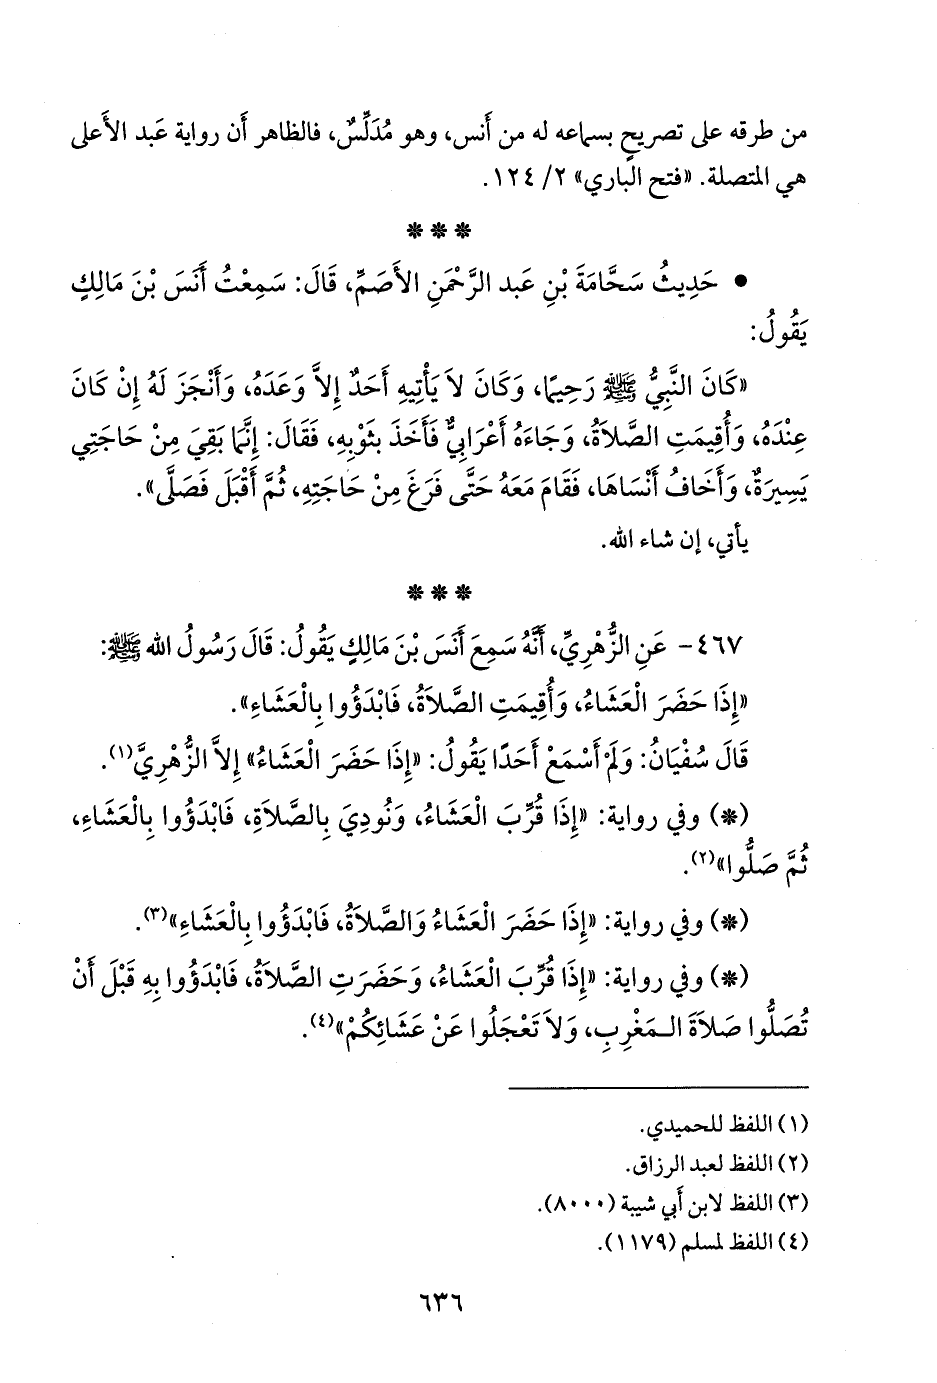 من طرقه على تصريحٍ بسماعه له من أَنس، وهو مُدَلِّسٌ، فالظاهر أَن رواية عَبد الأَعلى
هي المتصلة. «فتح الباري» ٢/ ١٢٤.
* * *
• حَدِيثُ سَحَّامَةَ بْنِ عَبد الرَّحْمَنِ الأَصَمِّ، قَالَ: سَمِعْتُ أَنَسَ بْنَ مَالِكٍ
يَقُولُ:
«كَانَ النَّبِيُّ ﷺ رَحِيمًا، وَكَانَ لاَ يَأْتِيهِ أَحَدٌ إِلاَّ وَعَدَهُ، وَأَنْجَزَ لَهُ إِنْ كَانَ
عِنْدَهُ، وَأُقِيمَتِ الصَّلاَةُ، وَجَاءَهُ أَعْرَابِيٌّ فَأَخَذَ بِثَوْبِهِ، فَقَالَ: إِنَّمَا بَقِيَ مِنْ حَاجَتِي
يَسِيرَةٌ، وَأَخَافُ أَنْسَاهَا، فَقَامَ مَعَهُ حَتَّى فَرَغَ مِنْ حَاجَتِهِ، ثُمَّ أَقْبَلَ فَصَلَّى».
يأتي، إن شاء الله.
* * *
٤٦٧- عَنِ الزُّهْرِيِّ، أَنَّهُ سَمِعَ أَنَسَ بْنَ مَالِكٍ يَقُولُ: قَالَ رَسُولُ الله ﷺ:
«إِذَا حَضَرَ الْعَشَاءُ، وَأُقِيمَتِ الصَّلاَةُ، فَابْدَؤُوا بِالْعَشَاءِ».
قَالَ سُفْيَانُ: وَلَمْ أَسْمَعْ أَحَدًا يَقُولُ: «إِذَا حَضَرَ الْعَشَاءُ» إِلاَّ الزُّهْرِيَّ(١).
(*) وفي رواية: «إِذَا قُرِّبَ الْعَشَاءُ، وَنُودِيَ بِالصَّلاَةِ، فَابْدَؤُوا بِالْعَشَاءِ،
ثُمَّ صَلُّوا»(٢).
(*) وفي رواية: «إِذَا حَضَرَ الْعَشَاءُ وَالصَّلاَةُ، فَابْدَؤُوا بِالْعَشَاءِ»(٣).
(*) وفي رواية: «إِذَا قُرِّبَ الْعَشَاءُ، وَحَضَرَتِ الصَّلاَةُ، فَابْدَؤُوا بِهِ قَبْلَ أَنْ
تُصَلُّوا صَلاَةَ الـمَغْرِبِ، وَلاَ تَعْجَلُوا عَنْ عَشَائِكُمْ»(٤).
(١) اللفظ للحميدي.
(٢) اللفظ لعبد الرزاق.
(٣) اللفظ لابن أَبي شيبة (٨٠٠٠).
(٤) اللفظ لمسلم (١١٧٩).
٦٣٦